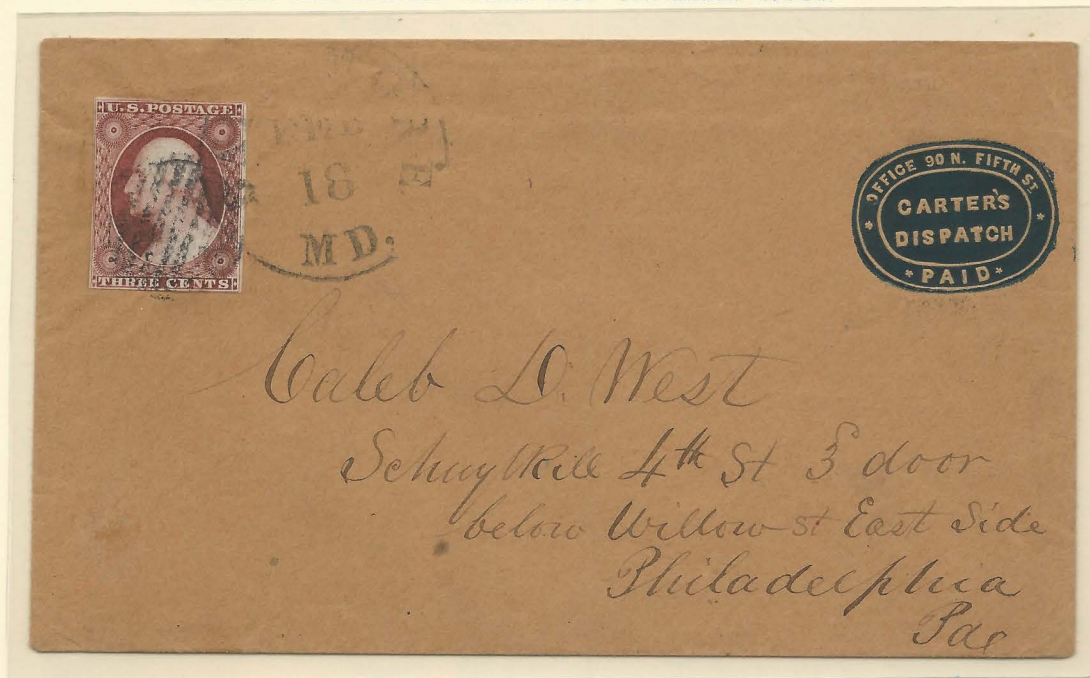 U.S. POSTAGE
THREE CENTS
18
MD.
OFFICE 90 N. FIFTH ST.
CARTER'S
DISPATCH
PAID
Caleb D. West
Schuylkill 4th St 3 door
below Willow St East Side
Philadelphia
Pae